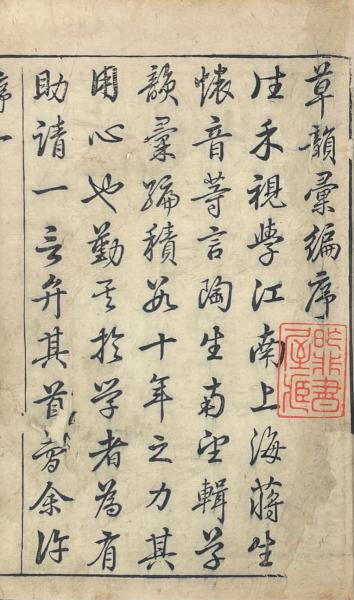 草韻彙編序
往余視學江南上海蔣生
懷音等言陶生南望輯草
韻彙編積數十年之力其
用心也勤其於學者為有
助請一言弁其首會余
序一